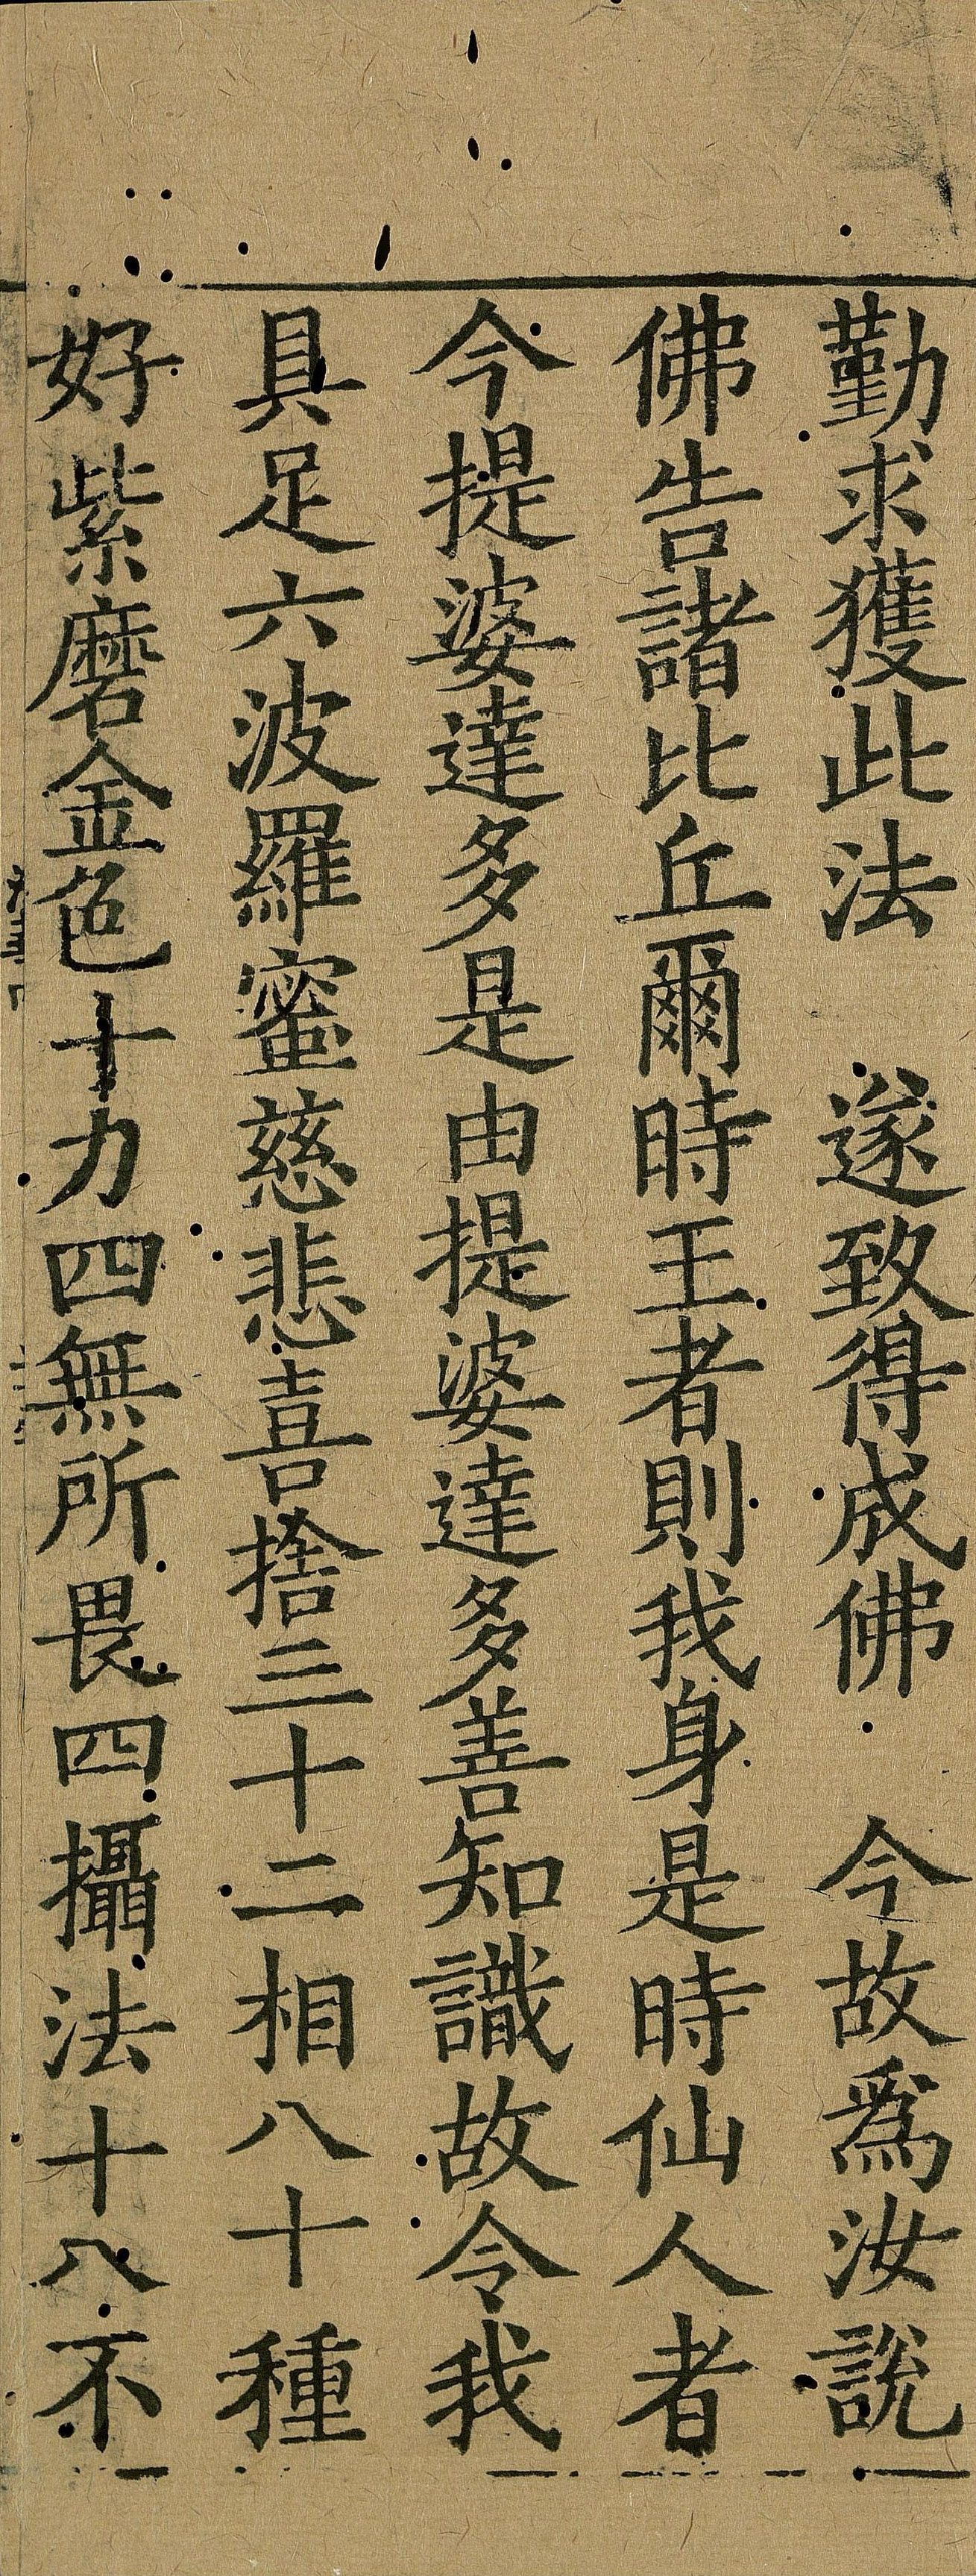 勤求獲此法　遂致得成佛　今故爲汝說
佛告諸比丘爾時王者則我身是時仙人者
今提婆達多是由提婆達多善知識故令我
具足六波羅蜜慈悲喜捨三十二相八十種
好紫磨金色十力四無所畏四攝法十八不